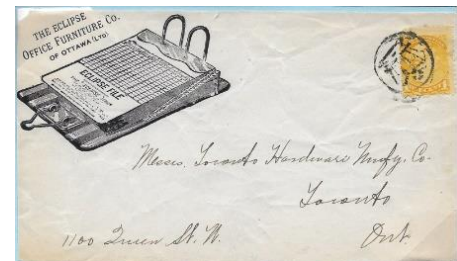 THE ECLIPSE
OFFICE FURNITURE CO.
OF OTTAWA (LTD)
ECLIPSE FILE
Messrs. Toronto Hardware Mnfg. Co.
Toronto
1100 Queen St. W.
Ont.